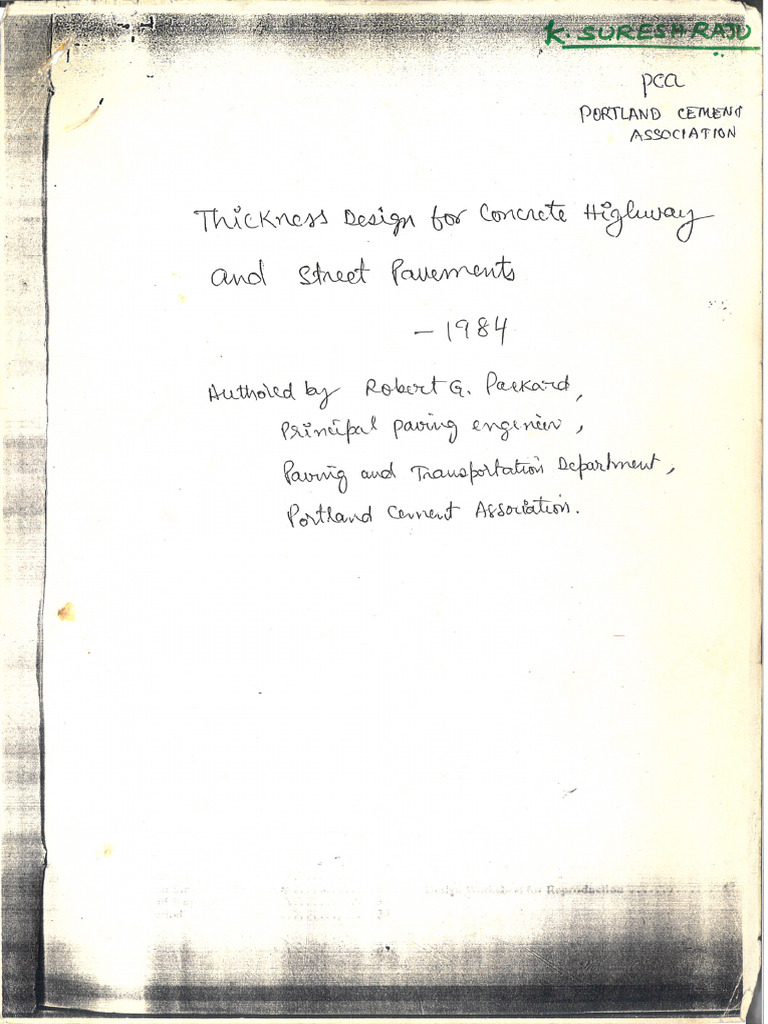 K. SURESH RAJU
pca
PORTLAND CEMENT
ASSOCIATION
Thickness Design for Concrete Highway
and Street Pavements
- 1984
Authored by Robert G. Packard,
Principal paving engineer,
Paving and Transportation Department,
Portland Cement Association.
Design Worksheet for Reproduction